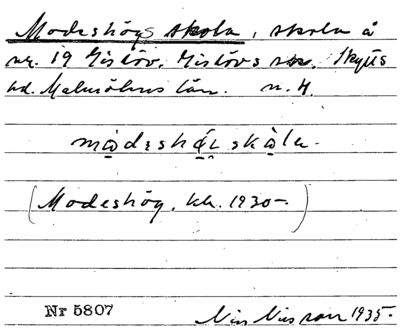 Modeshögs skola, skola å
nr. 19 Gislöv. Gislövs sn. Skytts
hd. Malmöhus län. n. 4.
(Modeshög, kh. 1930-.)
Nr 5807 Nils Nilsson 1935.